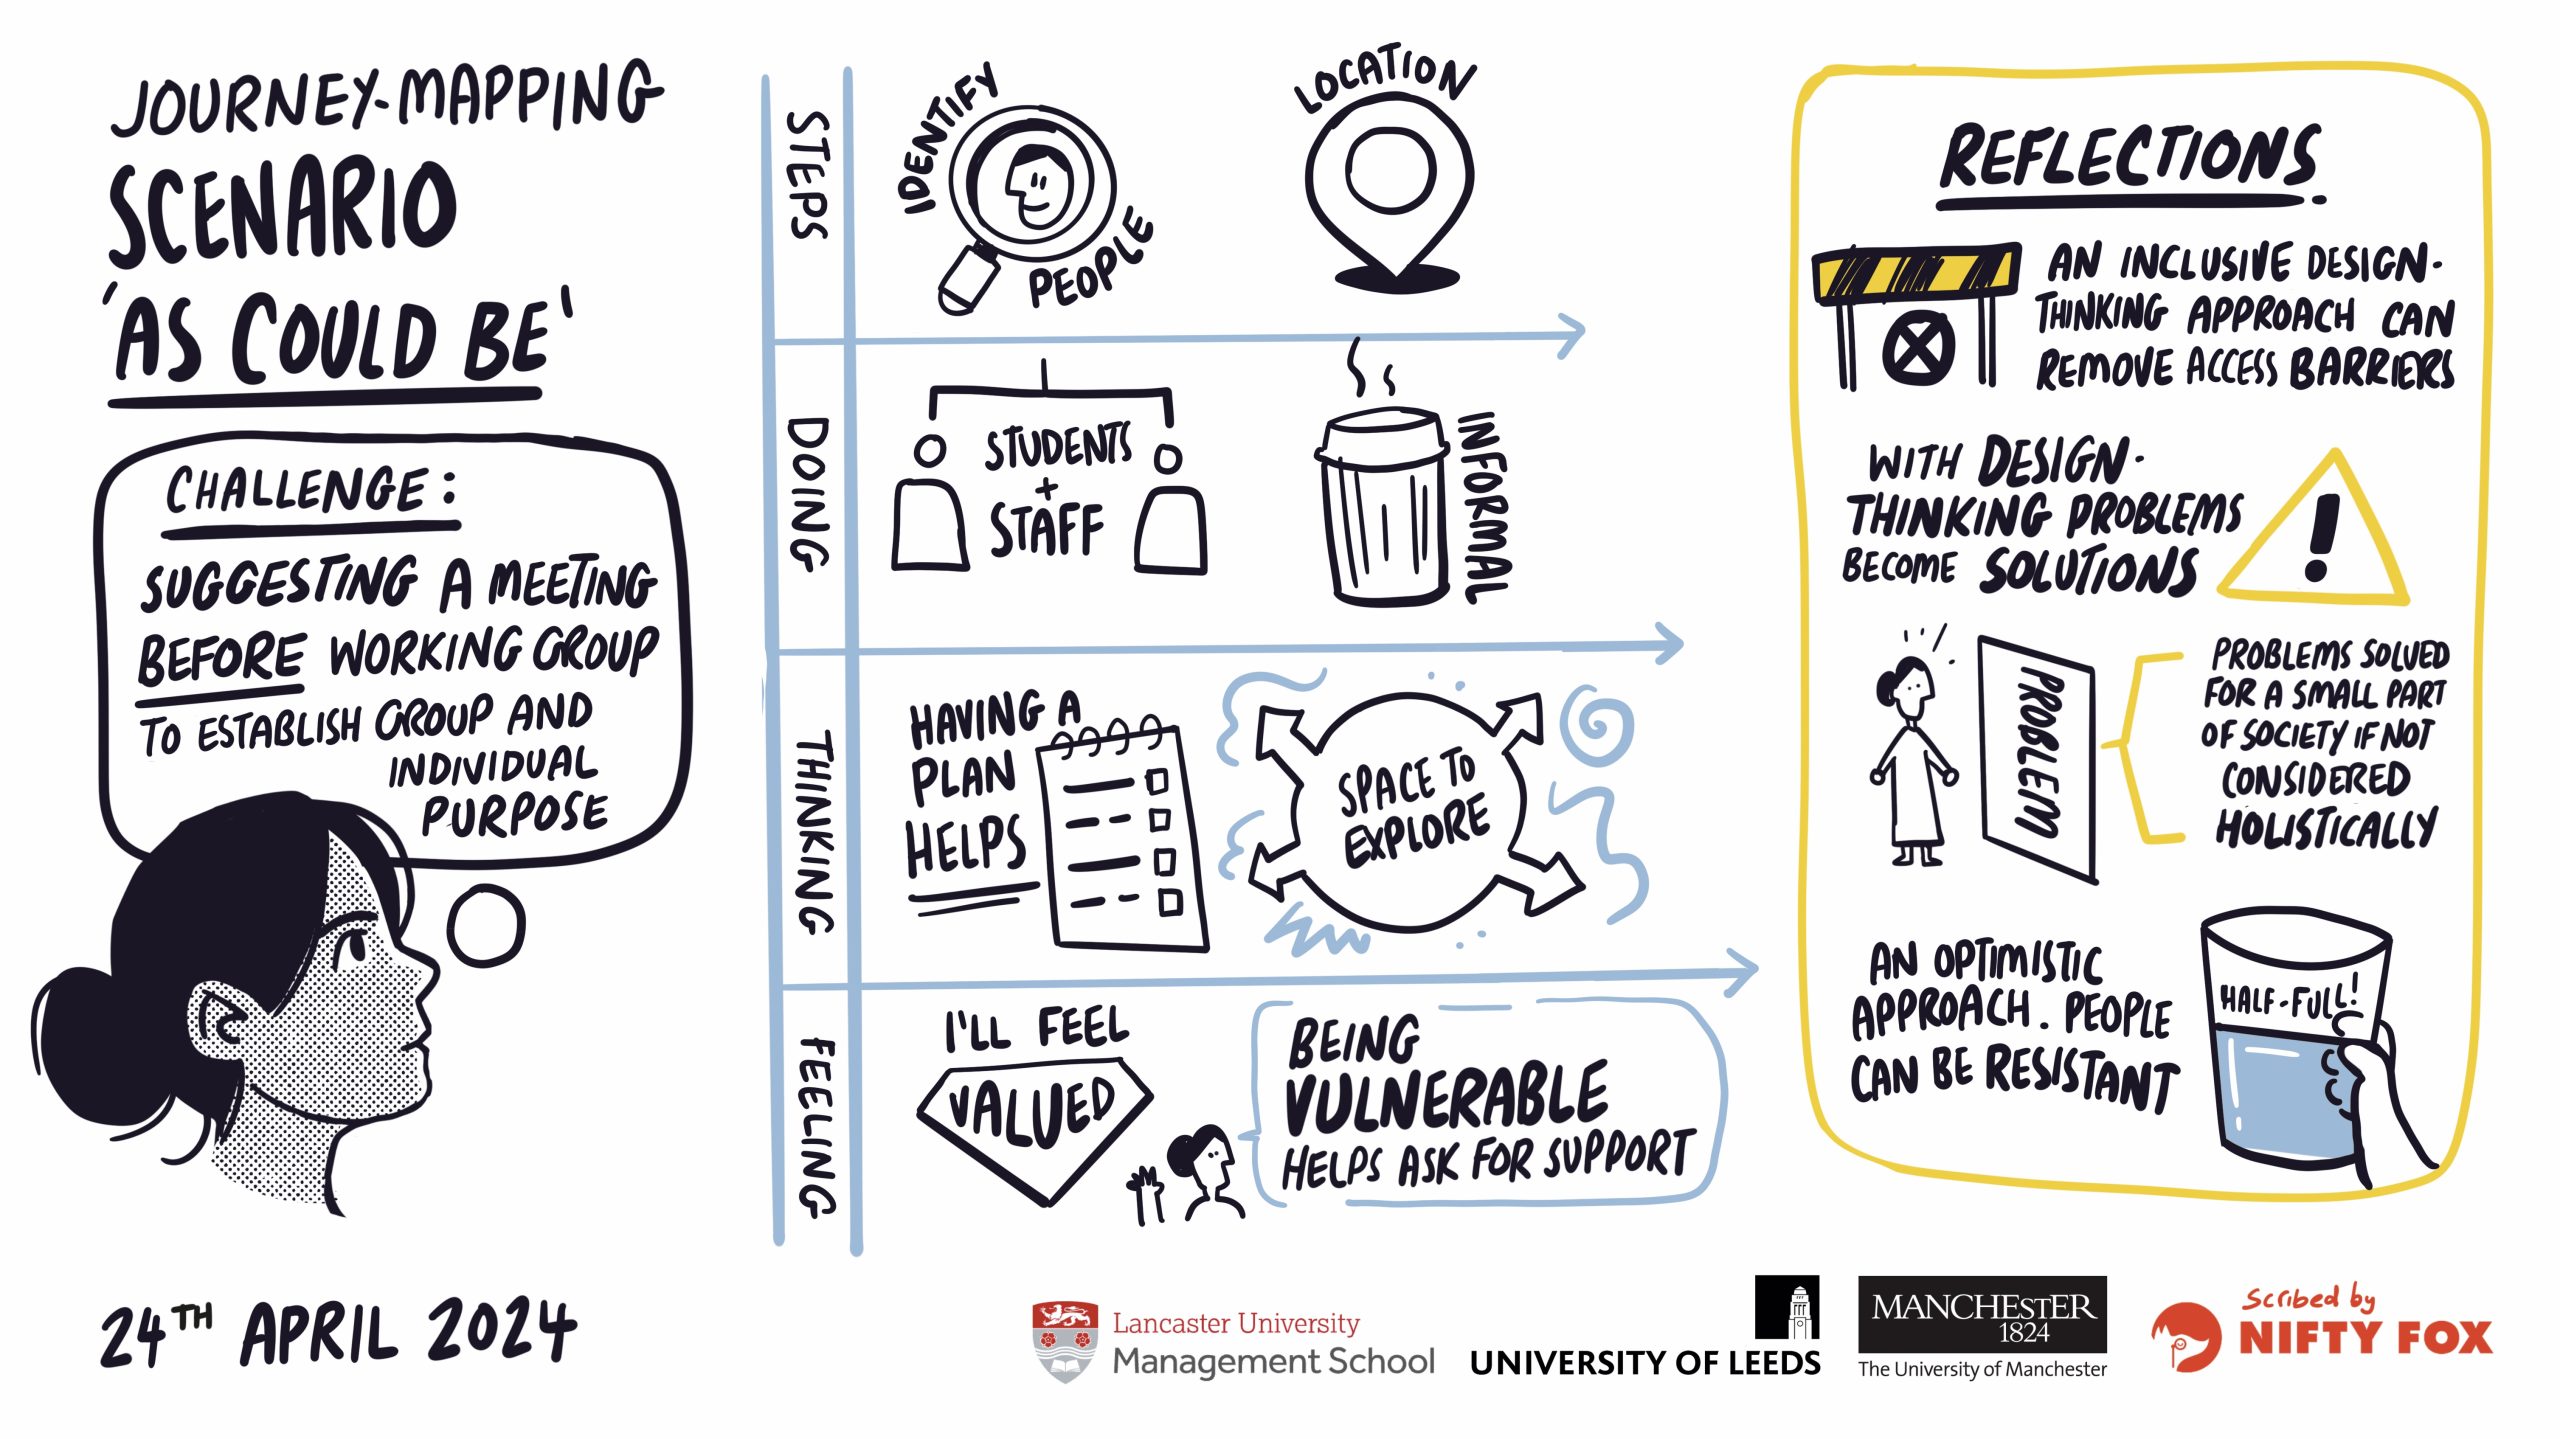 JOURNEY-MAPPING
SCENARIO
'AS COULD BE'
CHALLENGE:
SUGGESTING A MEETING
BEFORE WORKING GROUP
TO ESTABLISH GROUP AND
INDIVIDUAL
PURPOSE
24TH APRIL 2024
STEPS
IDENTIFY
PEOPLE
LOCATION
DOING
STUDENTS
+
STAFF
INFORMAL
THINKING
HAVING A
PLAN
HELPS
SPACE TO
EXPLORE
FEELING
I'LL FEEL
VALUED
BEING
VULNERABLE
HELPS ASK FOR SUPPORT
REFLECTIONS
AN INCLUSIVE DESIGN-
THINKING APPROACH CAN
REMOVE ACCESS BARRIERS
WITH DESIGN-
THINKING PROBLEMS
BECOME SOLUTIONS
!
PROBLEM
PROBLEMS SOLVED
FOR A SMALL PART
OF SOCIETY IF NOT
CONSIDERED
HOLISTICALLY
AN OPTIMISTIC
APPROACH. PEOPLE
CAN BE RESISTANT
HALF-FULL!
Lancaster University
Management School
UNIVERSITY OF LEEDS
MANCHESTER
1824
The University of Manchester
Scribed by
NIFTY FOX